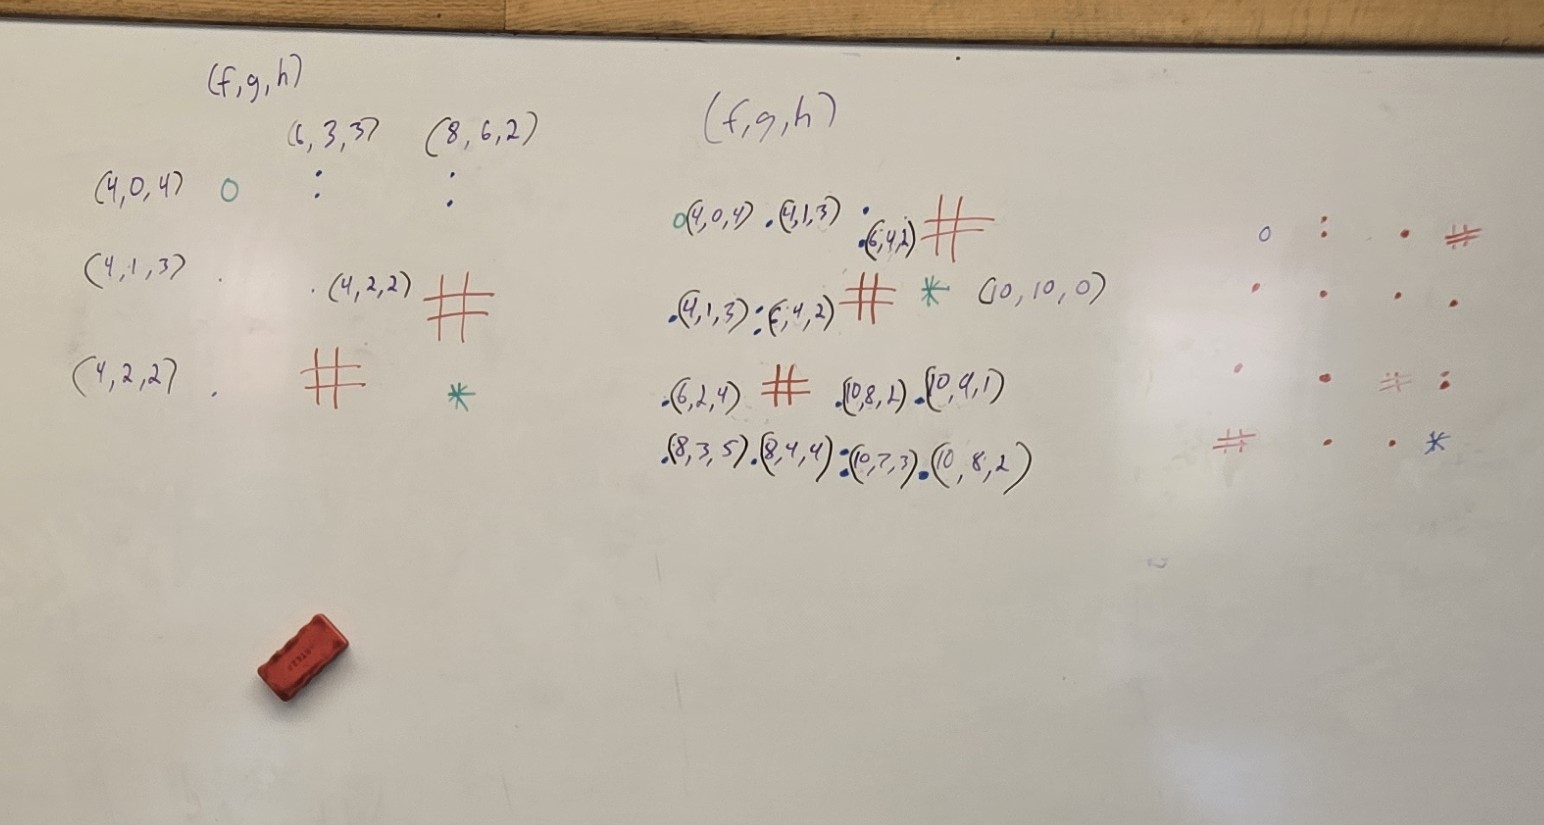 (f,g,h)
(6,3,3) (8,6,2)
(4,0,4) o : :
(4,1,3) . . (4,2,2) #
(4,2,2) . # *
(f,g,h)
o(4,0,4) .(4,1,3) :(6,4,2) #
.(4,1,3) :(6,4,2) # * (10,10,0)
.(6,2,4) # .(10,8,2) .(10,9,1)
.(8,3,5) .(8,4,4) :(10,7,3) .(10,8,2)
o : . #
. . . .
. . # :
# . . *